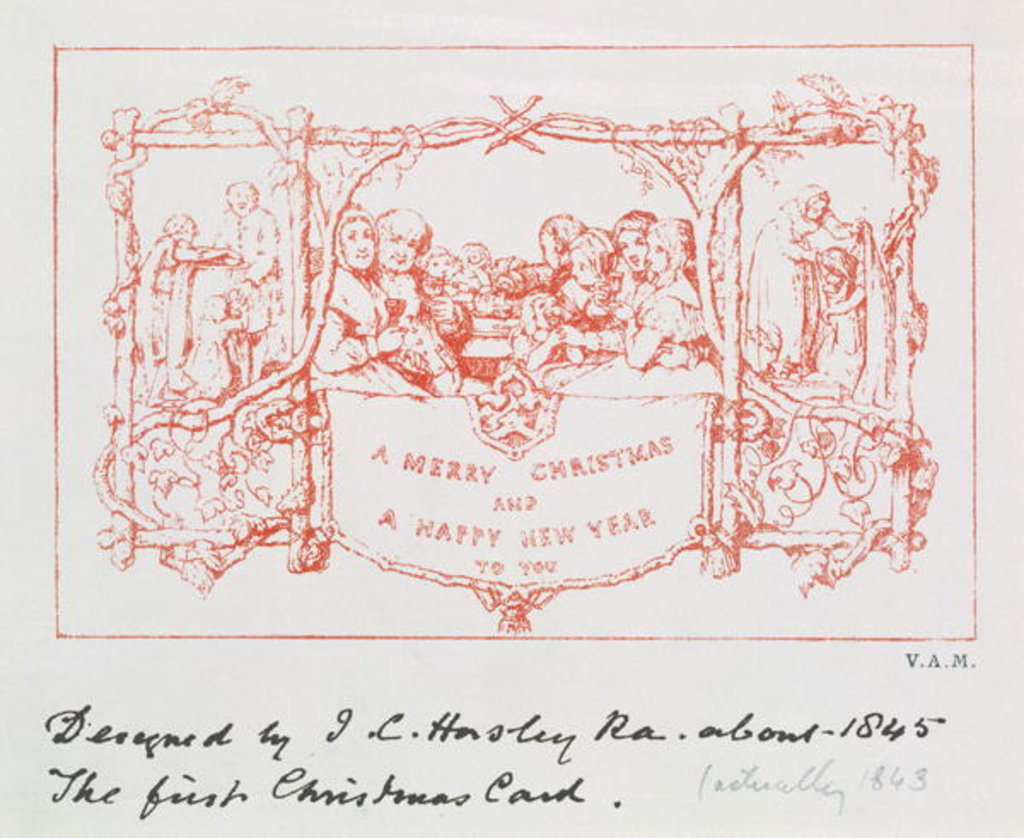 A MERRY CHRISTMAS
AND
A HAPPY NEW YEAR
TO YOU
V.A.M.
Designed by J. C. Horsley Ra. about 1845
The first Christmas Card.
(actually 1843